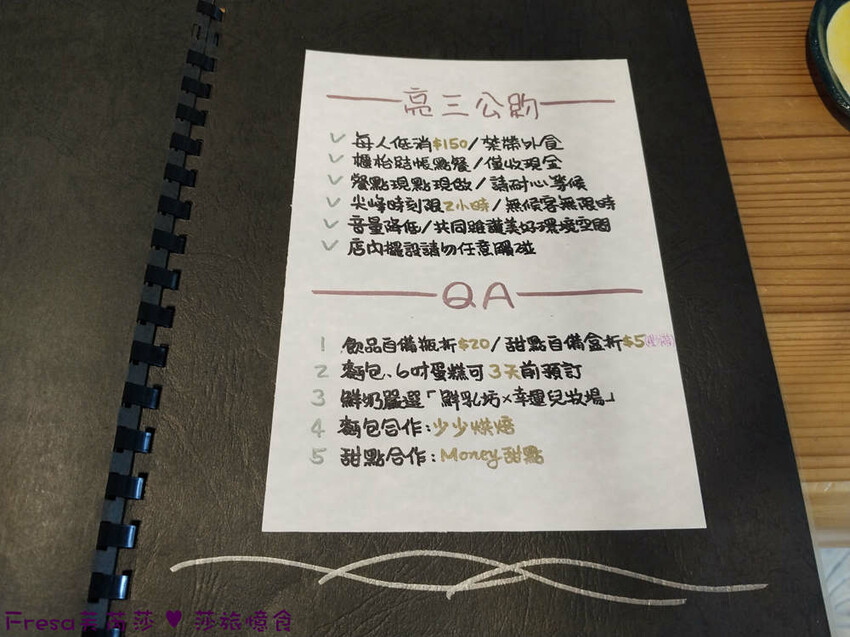 高三公約
每人低消$150/禁帶外食
櫃枱結帳點餐/僅收現金
餐點現點現做/請耐心等候
尖峰時刻限2小時/無候客無限時
音量降低/共同維護美好環境空間
店內擺設請勿任意觸碰
QA
1 飲品自備瓶折$20/甜點自備盒折$5
2 麵包、6吋蛋糕可3天前預訂
3 鮮奶嚴選「鮮乳坊×幸運兒牧場」
4 麵包合作:少少烘焙
5 甜點合作:Money甜點
Fresa芙芮莎 ♥ 莎旅憶食